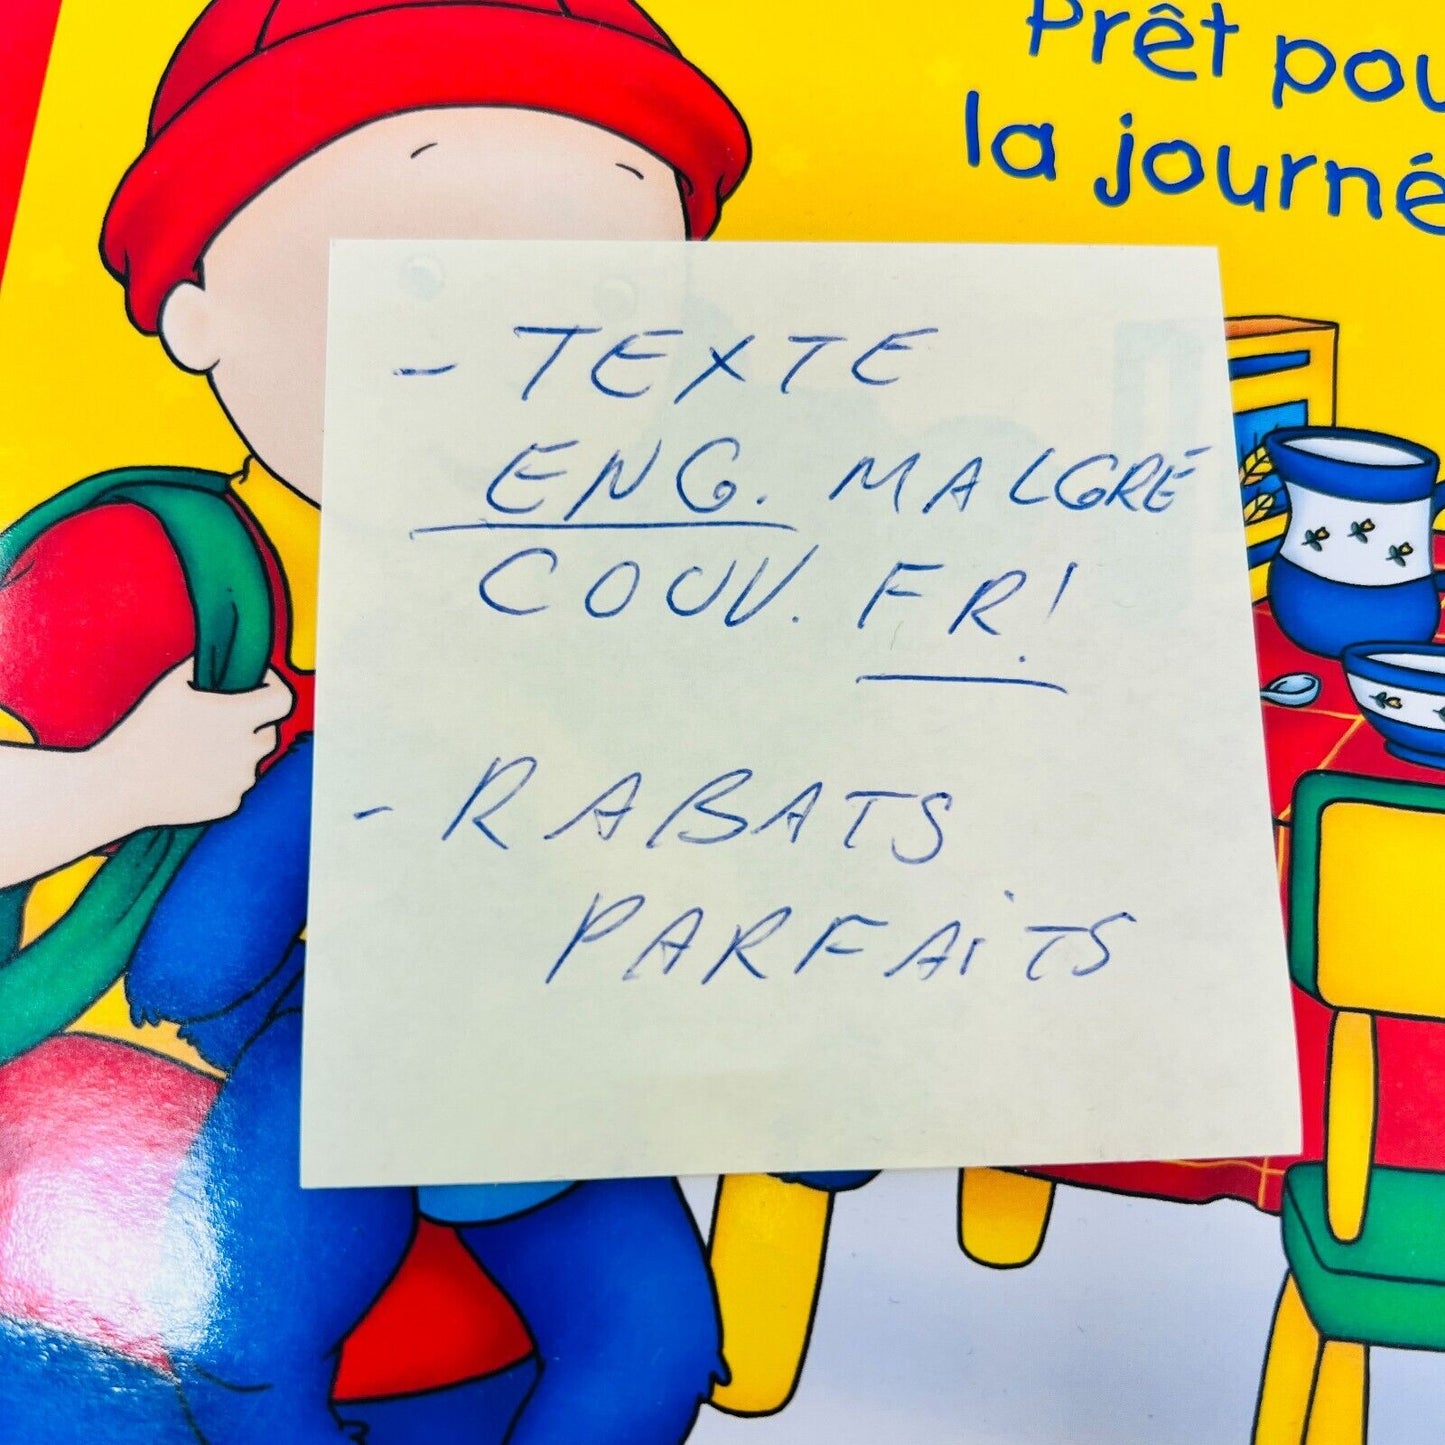 Prêt pou
la journé
- TEXTE
ENG. MALGRÉ
COUV. FR!
- RABATS
PARFAITS